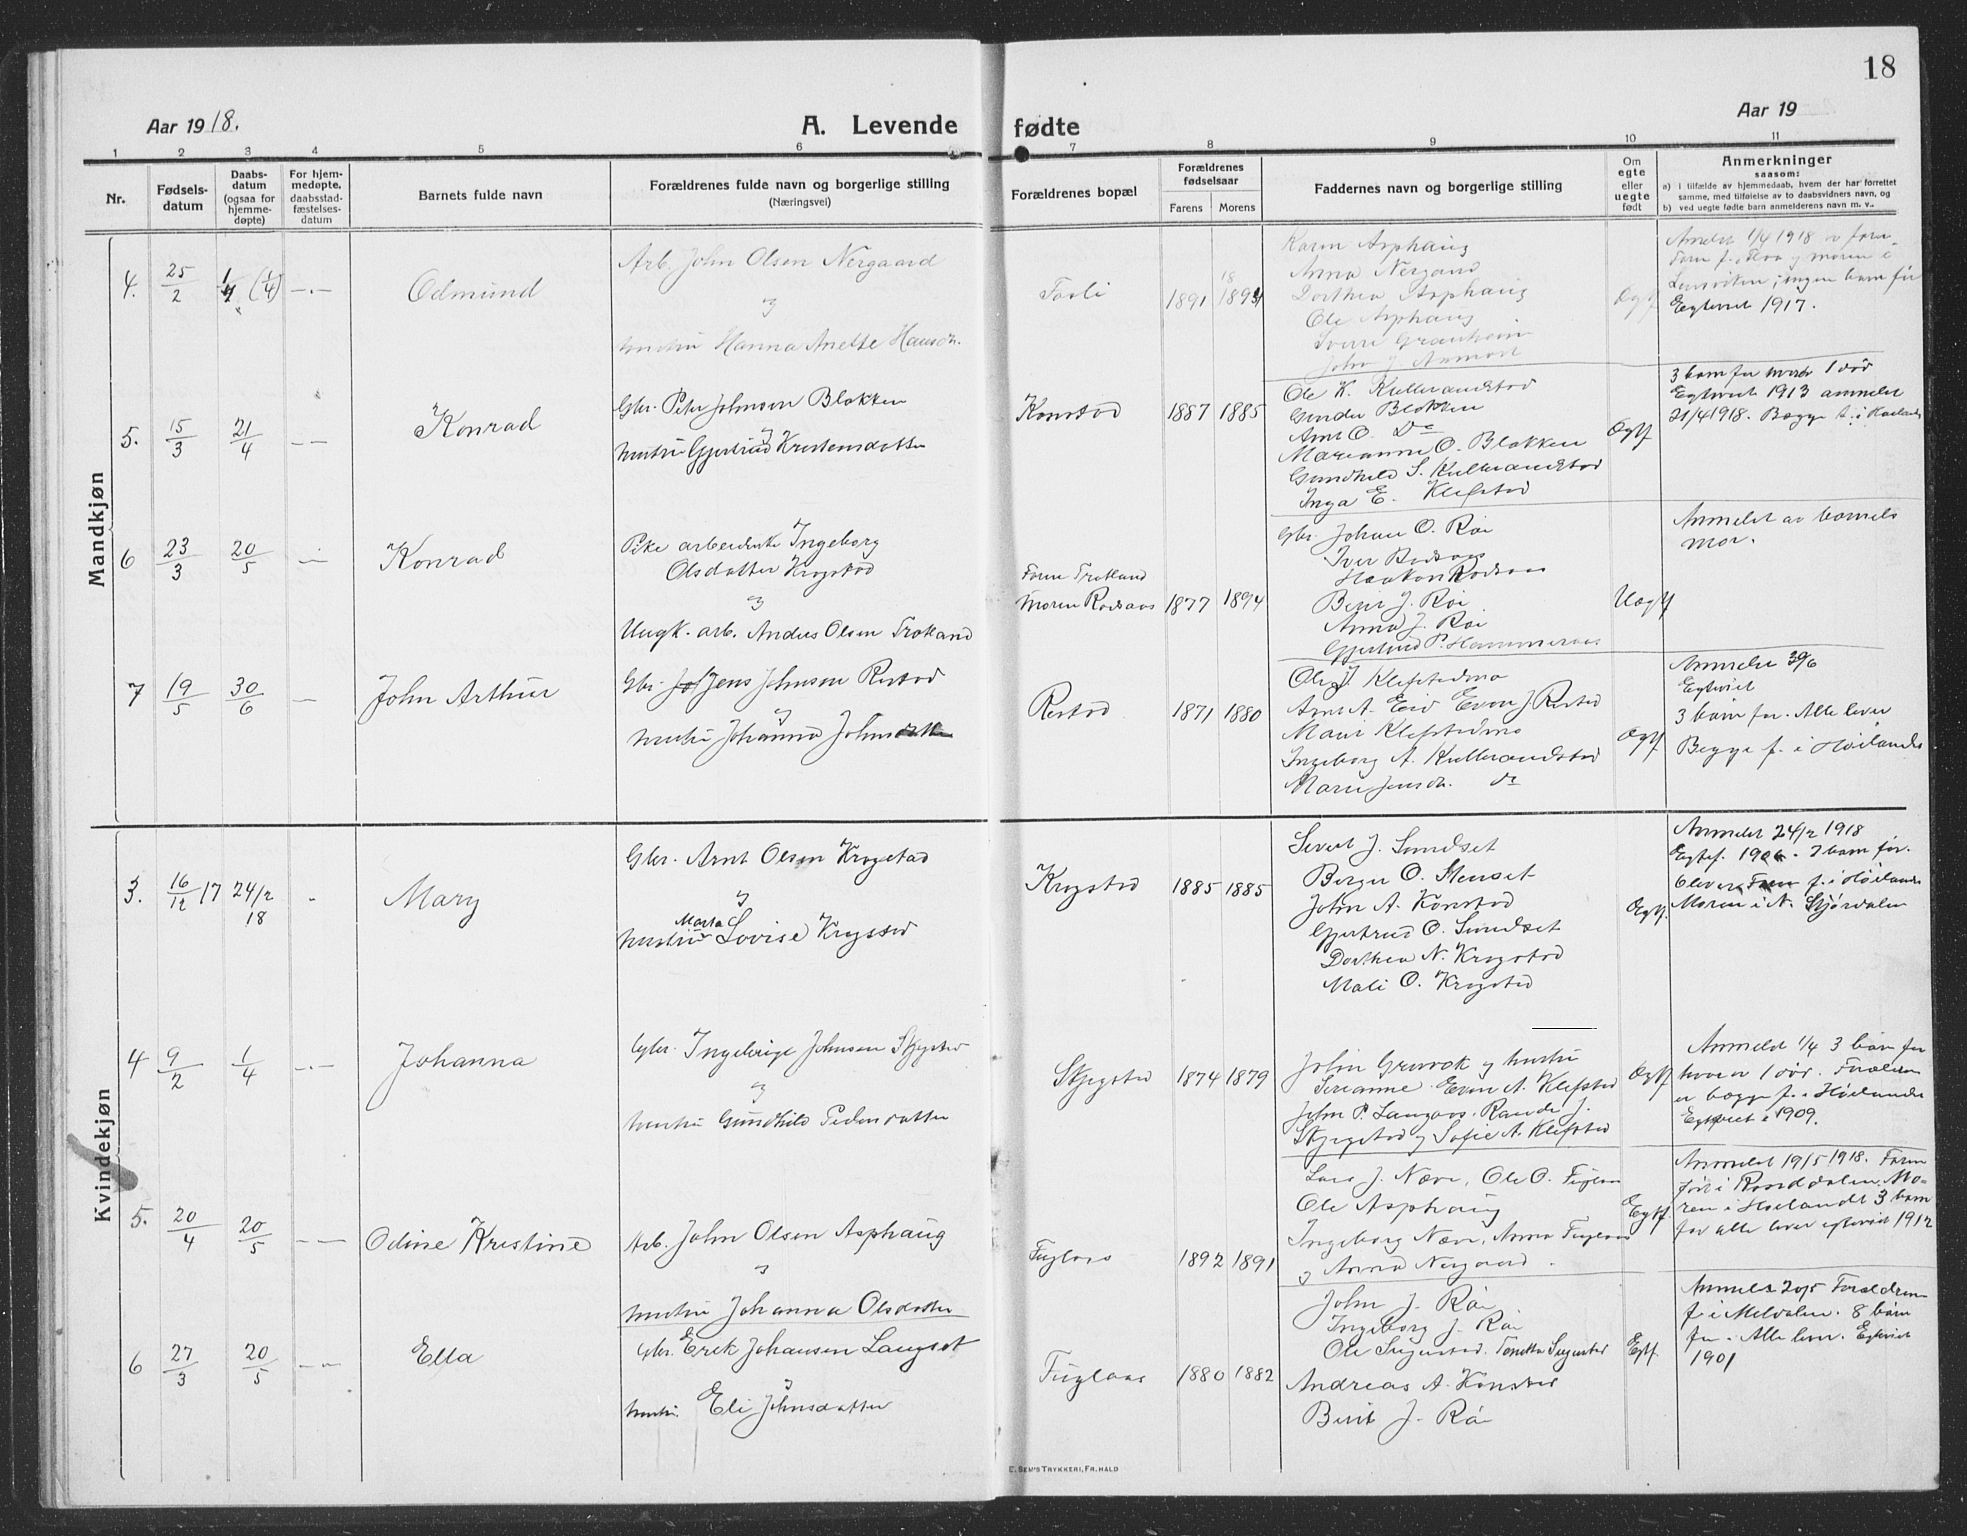 18
Aar 1918.
A. Levende fødte
Aar 19
1 2 3 4 5 6 7 8 9 10 11
Nr.
Fødsels-
datum
Daabs-
datum
(ogsaa for
hjemme-
døpte)
For hjem-
medøpte,
daabsstad-
fæstelses-
datum
Barnets fulde navn
Forældrenes fulde navn og borgerlige stilling
(Næringsvei)
Forældrenes bopæl
Forældrenes
fødselsaar
Farens Morens
Faddernes navn og borgerlige stilling
Om
egte
eller
uegte
født
Anmerkninger
saasom:
a) i tilfælde av hjemmedaab, hvem der har forrettet
samme, med tilføielse av to daabsvidners navn, og
b) ved uegte fødte barn anmelderens navn m. v..
Mandkjøn
4. 25/2 1/4 (1/4) —.— Odmund
Arb. John Olsen Nergaard
og
hustru Hanna Anette Hansdn.
1891 1893
Karen Asphaug
Anna Nergaard
Dorthea Asphaug
Ole Asphaug
Ægtf
Anmeldt 1/4 1918 av faren
ingen barn før
Egteviet 1917.
5. 15/3 21/4 — — Konrad
Gbr. Peter Johnsen Blokken
og
hustru Gjertrud Kristensdatter
Konstad 1887 1885
Ole K. Kulbrandstad
Gunder Blokken
Arnt O. Do
Marianne O. Blokken
Gundhild S. Kulbrandstad
Inga E. Klefstad
Ægtf
3 barn før hvorav 1 død
Egteviet 1913 anmeldt
21/4 1918. Begge f. i Høilandet
6 23/3 20/5 — Konrad
Pike arbeiderske Ingeborg
Olsdatter Krogstad
og
Ungk. arb. Anders Olsen Troland
Moren Rodsaas 1877 1894
Gbr. Johan O. Røe
Iver Rodsaas
Haakon Rodsaas
Berit J. Røe
Anna J. Røe
Gjertrud P. Hammeraas
Uægtf
Anmeldt av barnets
mor.
7 19/5 30/6 — John Arthur
Gbr. Jens Johnsen Restad
og
hustru Johanna Johnsdatter
Restad 1871 1880
Ole J. Klefstadmo
Arnt A. Even J. Restad
Marit Klefstadmo
Ingeborg A. Kulbrandstad
Maren Jensdn. Do
Ægtf
Anmeldt 30/6
Egteviet
3 barn før. Alle lever
Begge f. i Høilandet
Kvindekjøn
3. 16/12 17 24/2 18 Mary
Gbr. Arnt Olsen Krogstad
og
hustru Marta Lovise Krogstad
Krogstad 1885 1885
Sivert J. Sundset
Berger O. Stenset
John A. Konstad
Gjertrud O. Sundset
Dorthea N. Krogstad
Mali O. Krogstad
Ægtf.
Anmeldt 24/2 1918
Egtef. 1906. 7 barn før.
6 lever. Faren f. i Høilandet
Moren i N. Stjørdalen
4 9/2 1/4 —.— Johanna
Gbr. Ingebrigt Johnsen Skjegstad
og
hustru Gundhild Pedersdatter
Skjegstad 1874 1879
John Grønvok og hustru
Serianne. Even A. Klefstad
John P. Langaas. Randi J.
Skjegstad og Sofie A. Klefstad
Ægtf
Anmeldt 1/4 3 barn før
hvorav 1 død. Forældrene
er begge f. i Høilandet
Egteviet i 1909.
5. 20/4 20/5 — — Odine Kristine
Arb. John Olsen Asphaug
og
hustru Johanna Olsdatter
Fuglaas 1892 1891
Lars J. Næve, Ole O. Fuglaas
Ole Asphaug
Ingeborg Næve, Anna Fuglaas
og Anna Nergaard.
Egtf.
Anmeldt 19/5 1918. Faren
født i Rennddalen. Mo-
ren i Høilandet 3 barn
før alle lever egteviet 1912
6 27/3 20/5 — — Ella
Gbr. Erik Johansen Langset
og
hustru. Eli Johnsdatter
Fuglaas 1880 1882
John J. Røe
Ingeborg J. Røe
Andreas A. Konstad
Berit J. Røe
Egtf.
Anmeldt 20/5 Forældrene
f. i Meldalen. 8 barn
før. Alle lever. Egteviet
1901
E. SEM'S TRYKKERI, FR.HALD